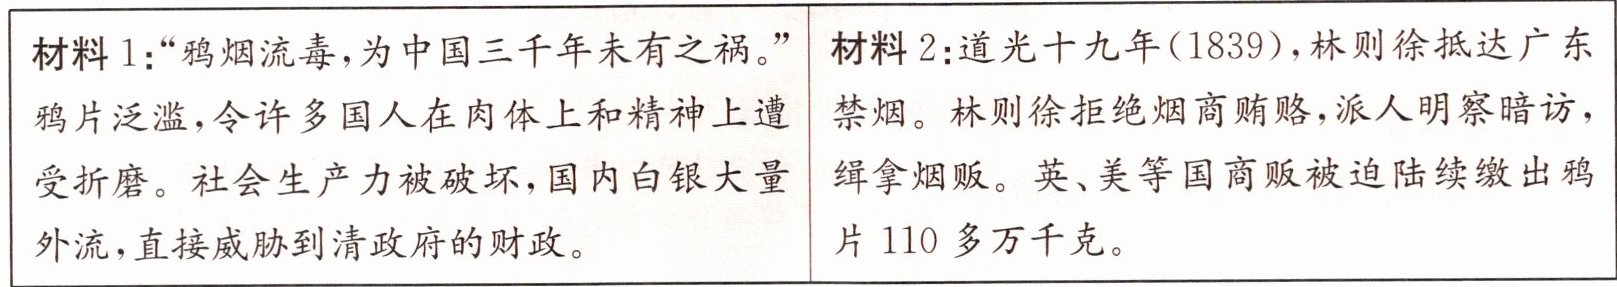 材料1:“鸦烟流毒,为中国三千年未有之祸。”
鸦片泛滥,令许多国人在肉体上和精神上遭
受折磨。社会生产力被破坏,国内白银大量
外流,直接威胁到清政府的财政。
材料2:道光十九年(1839),林则徐抵达广东
禁烟。林则徐拒绝烟商贿赂,派人明察暗访,
缉拿烟贩。英、美等国商贩被迫陆续缴出鸦
片110多万千克。